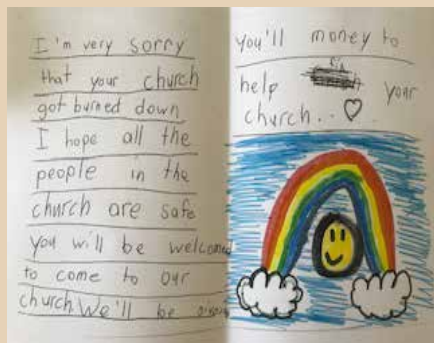 I'm very sorry
that your church
got burned down
I hope all the
people in the
church are safe
you will be welcomed
to come to our
church. We'll be
you'll money to
help your
church.. ♡.